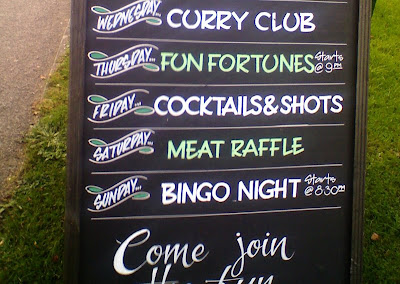 WEDNESDAY... CURRY CLUB
THURSDAY... FUN FORTUNES Starts @ 9PM
FRIDAY... COCKTAILS & SHOTS
SATURDAY... MEAT RAFFLE
SUNDAY... BINGO NIGHT Starts @ 8:30PM
Come join
the fun